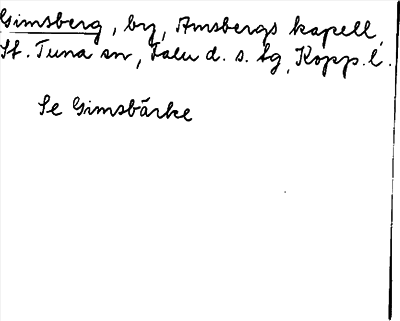 Gimsberg, by, Amsbergs kapell,
St. Tuna sn, Falu d. s. tg, Kopp. l.
Se Gimsbärke